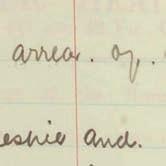 arrear. op.
eshie and.